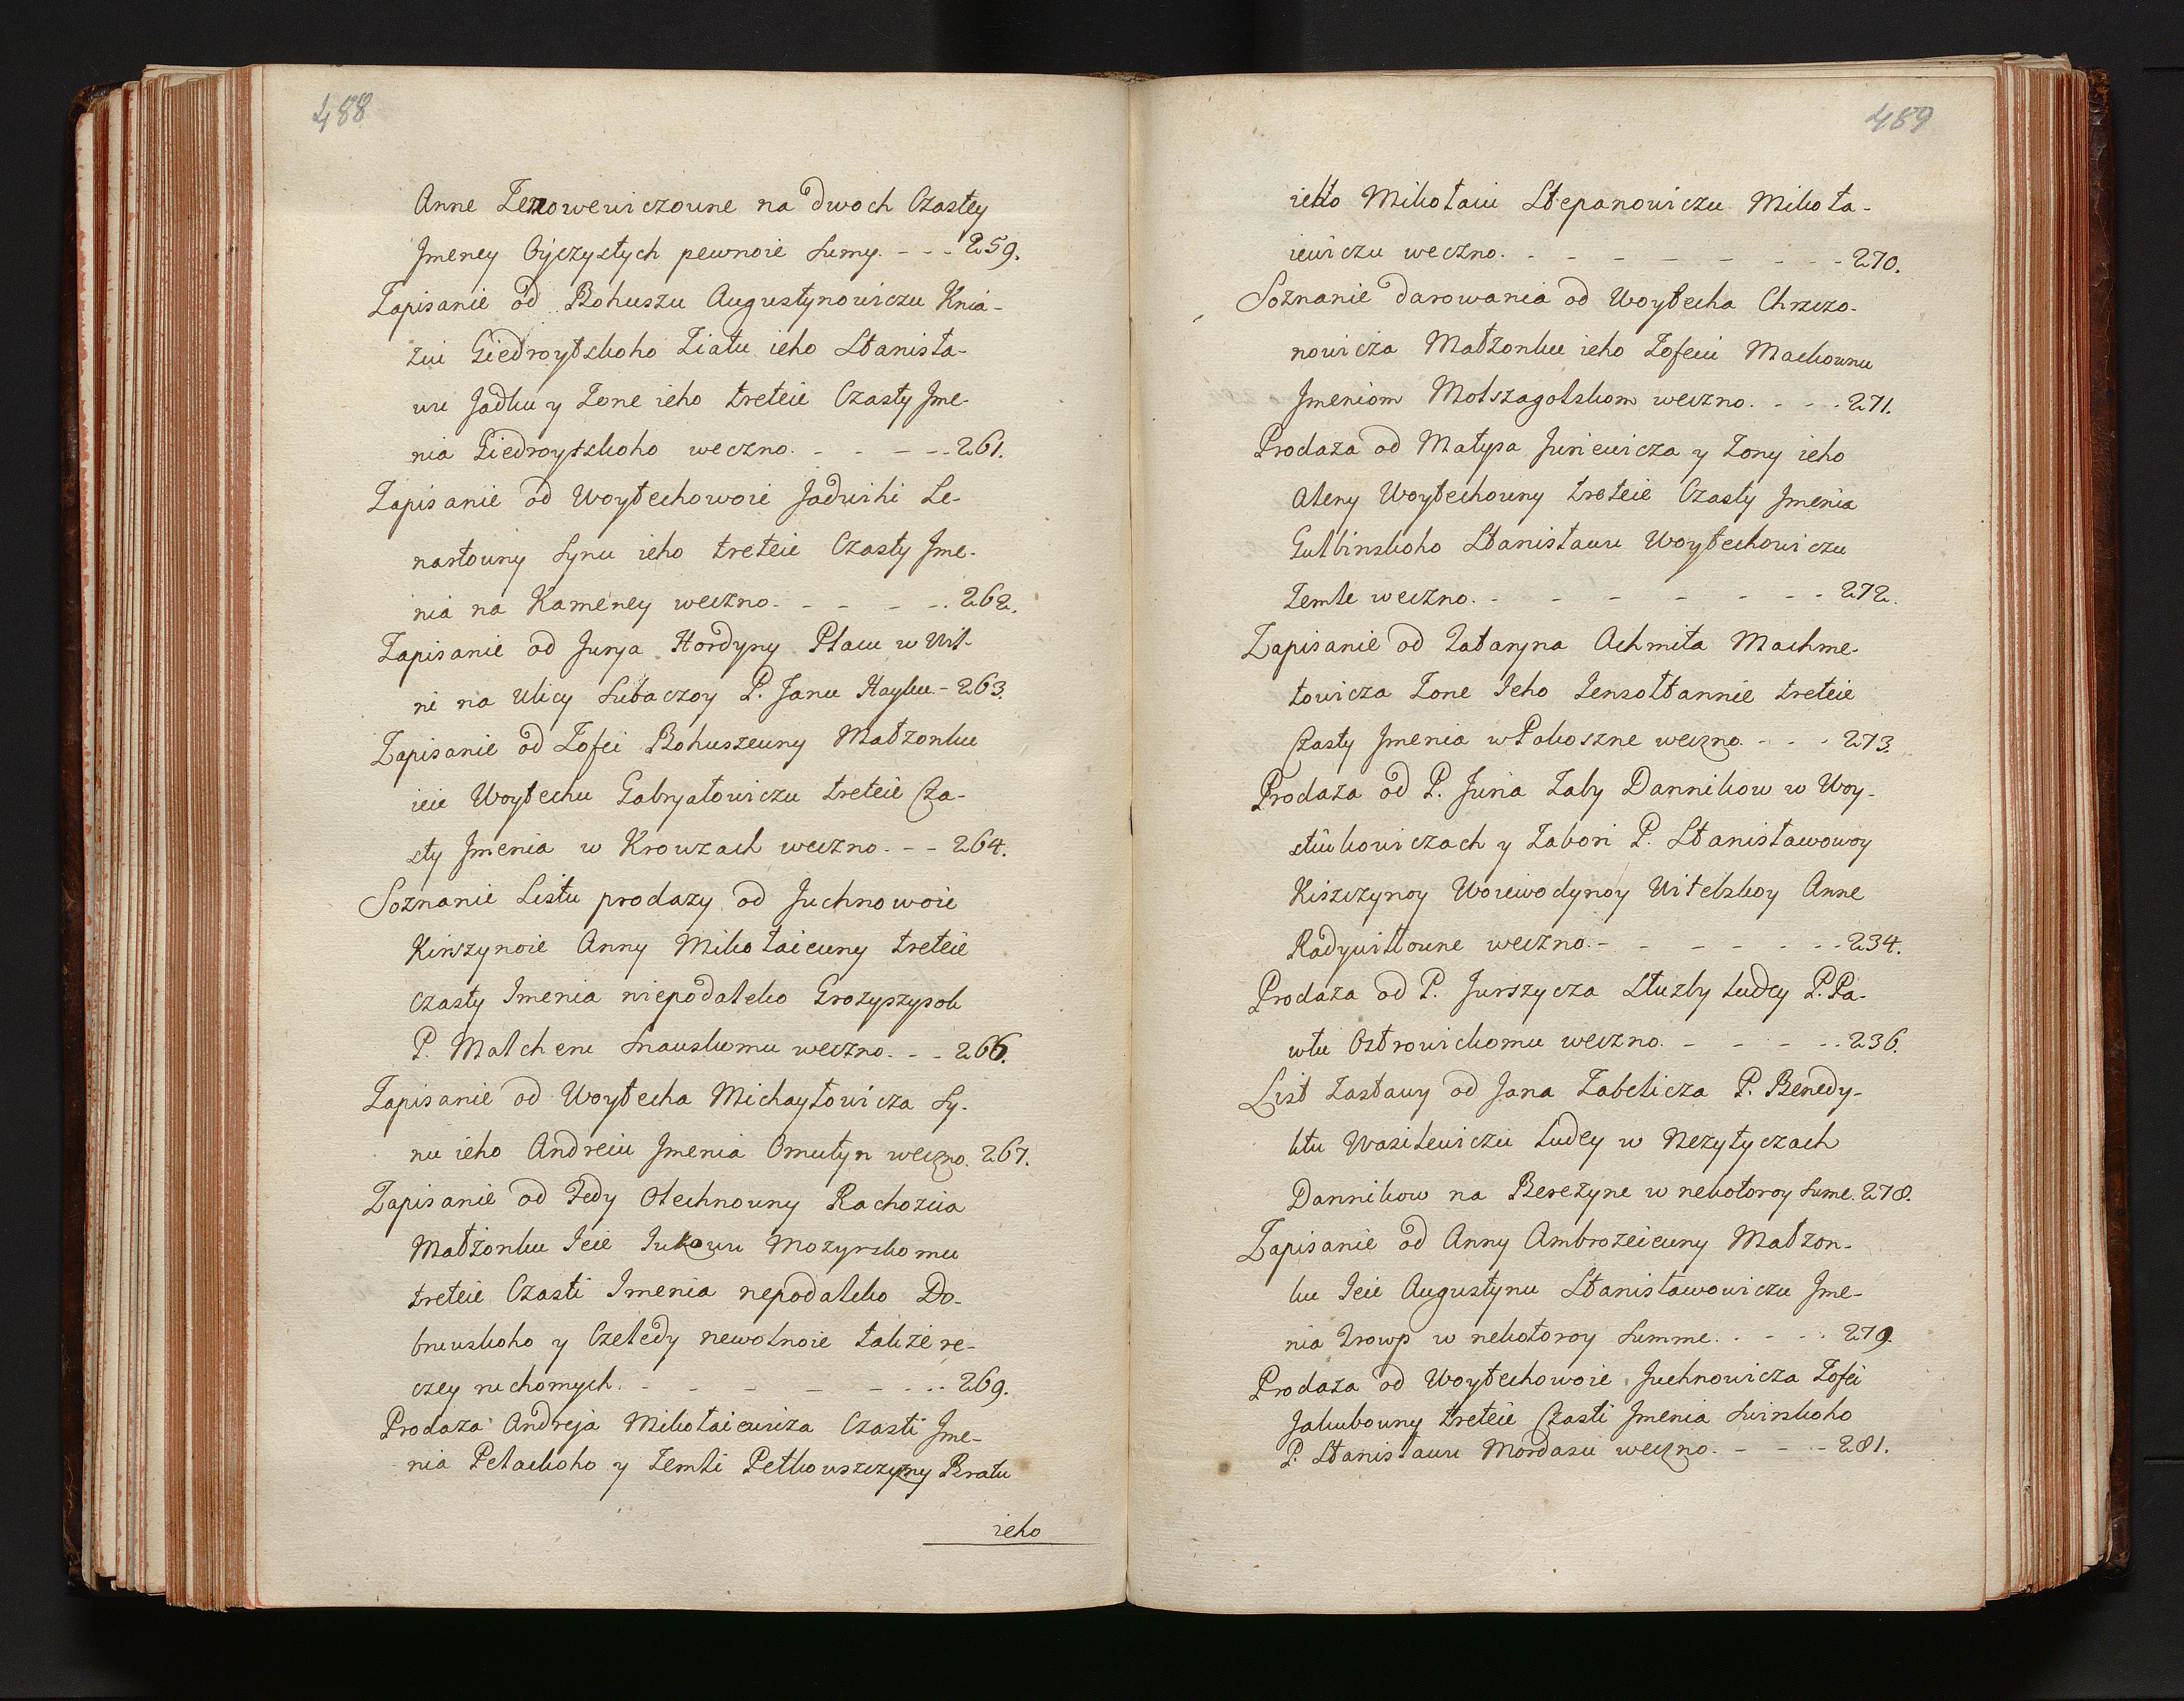 488
Anne Zenowewiczowne na dwoch Czastey
Jmeney Oyczystych pewnoie Sumy. - - - 259.
Zapisanie od Bohuszu Augustynowiczu Knia-
ziu Giedroytskoho Ziatu ieho Stanisła-
wu Jadku y Zone ieho treteie Czasty Jme-
nia Giedroytskoho weczno. - - - - - 261.
Zapisanie od Woytechowoie Jadwihi Le-
nartowny Synu ieho treteie Czasty Jme-
nia na Kameney weczno. - - - - - 262.
Zapisanie od Jurja Hordyny Placu w Wil-
ni na Ulicy Subaczoy P. Janu Hayku - 263.
Zapisanie od Zofei Bohuszewny Małzonku
ieie Woytechu Gabryałowiczu treteie Cza-
sty Jmenia w Krowzach weczno. - - 264.
Soznanie Listu prodazy od Juchnowoie
Kinszynoie Anny Mikołaiewny treteie
Czasty Imenia niepodaleko Grozyszyszok
P. Malcheru Snauskomu weczno. - - 266.
Zapisanie od Woytecha Michayłowicza Sy-
nu ieho Andreiu Jmenia Omulyn weczno. 267.
Zapisanie od Fedy Olechnowny Rachozia
Małżonku Ieie Iukowu Mozyrskomu
treteie Czasti Imenia nepodaleko Do-
bruuskoho y Czeledy newolnoie takze re-
czey ruchomych. - - - - - - - 269.
Prodaza Andreja Mikołaiewicza Czasti Jme-
nia Pelackoho y Zemli Petkowszczyzny Bratu
ieho
489
ieho Mikołaiu Stepanowiczu Mikoła-
iewiczu weczno. - - - - - - - - 270.
Soznanie darowania od Woytecha Chrszo-
nowicza Małzonku ieho Zofeiu Mackownu
Jmeniom Motszagolskom weczno. - - - 271.
Prodaza od Matysa Juriewicza y Zony ieho
Aleny Woytechowny treteie Czasty Jmenia
Gulbinskoho Stanisławu Woytechowiczu
Zemle weczno. - - - - - - - - 272.
Zapisanie od Tataryna Achmita Machme-
towicza Zone Ieho Zensołtannie treteie
Czasty Jmenia w Połoszne weczno. - - - 273.
Prodaza od P. Juria Zaby Dannikow w Woy-
stukowiczach y Zabori P. Stanisławowoy
Kiszczynoy Woiewodynoy Witebskoy Anne
Radywiłowne weczno. - - - - - - - 234.
Prodaza od P. Jurszycza Służby Ludey P. Pa-
włu Ostrowickomu weczno. - - - - - 236.
List Zastawy od Jana Zabelicza P. Benedy-
ktu Wasilewiczu Ludey w Nezytyczach
Dannikow na Berezyne w nekotoroy Sume. 278.
Zapisanie od Anny Ambrozeiewny Małzon-
ku Ieie Augustynu Stanisławowiczu Jme-
nia Trowp w nekotoroy Summe. - - - - 279.
Prodaza od Woytechowoie Juchnowicza Zofei
Jakubowny treteie Czasti Jmenia Swirskoho
P. Stanisławu Mordasu weczno. - - - - 281.